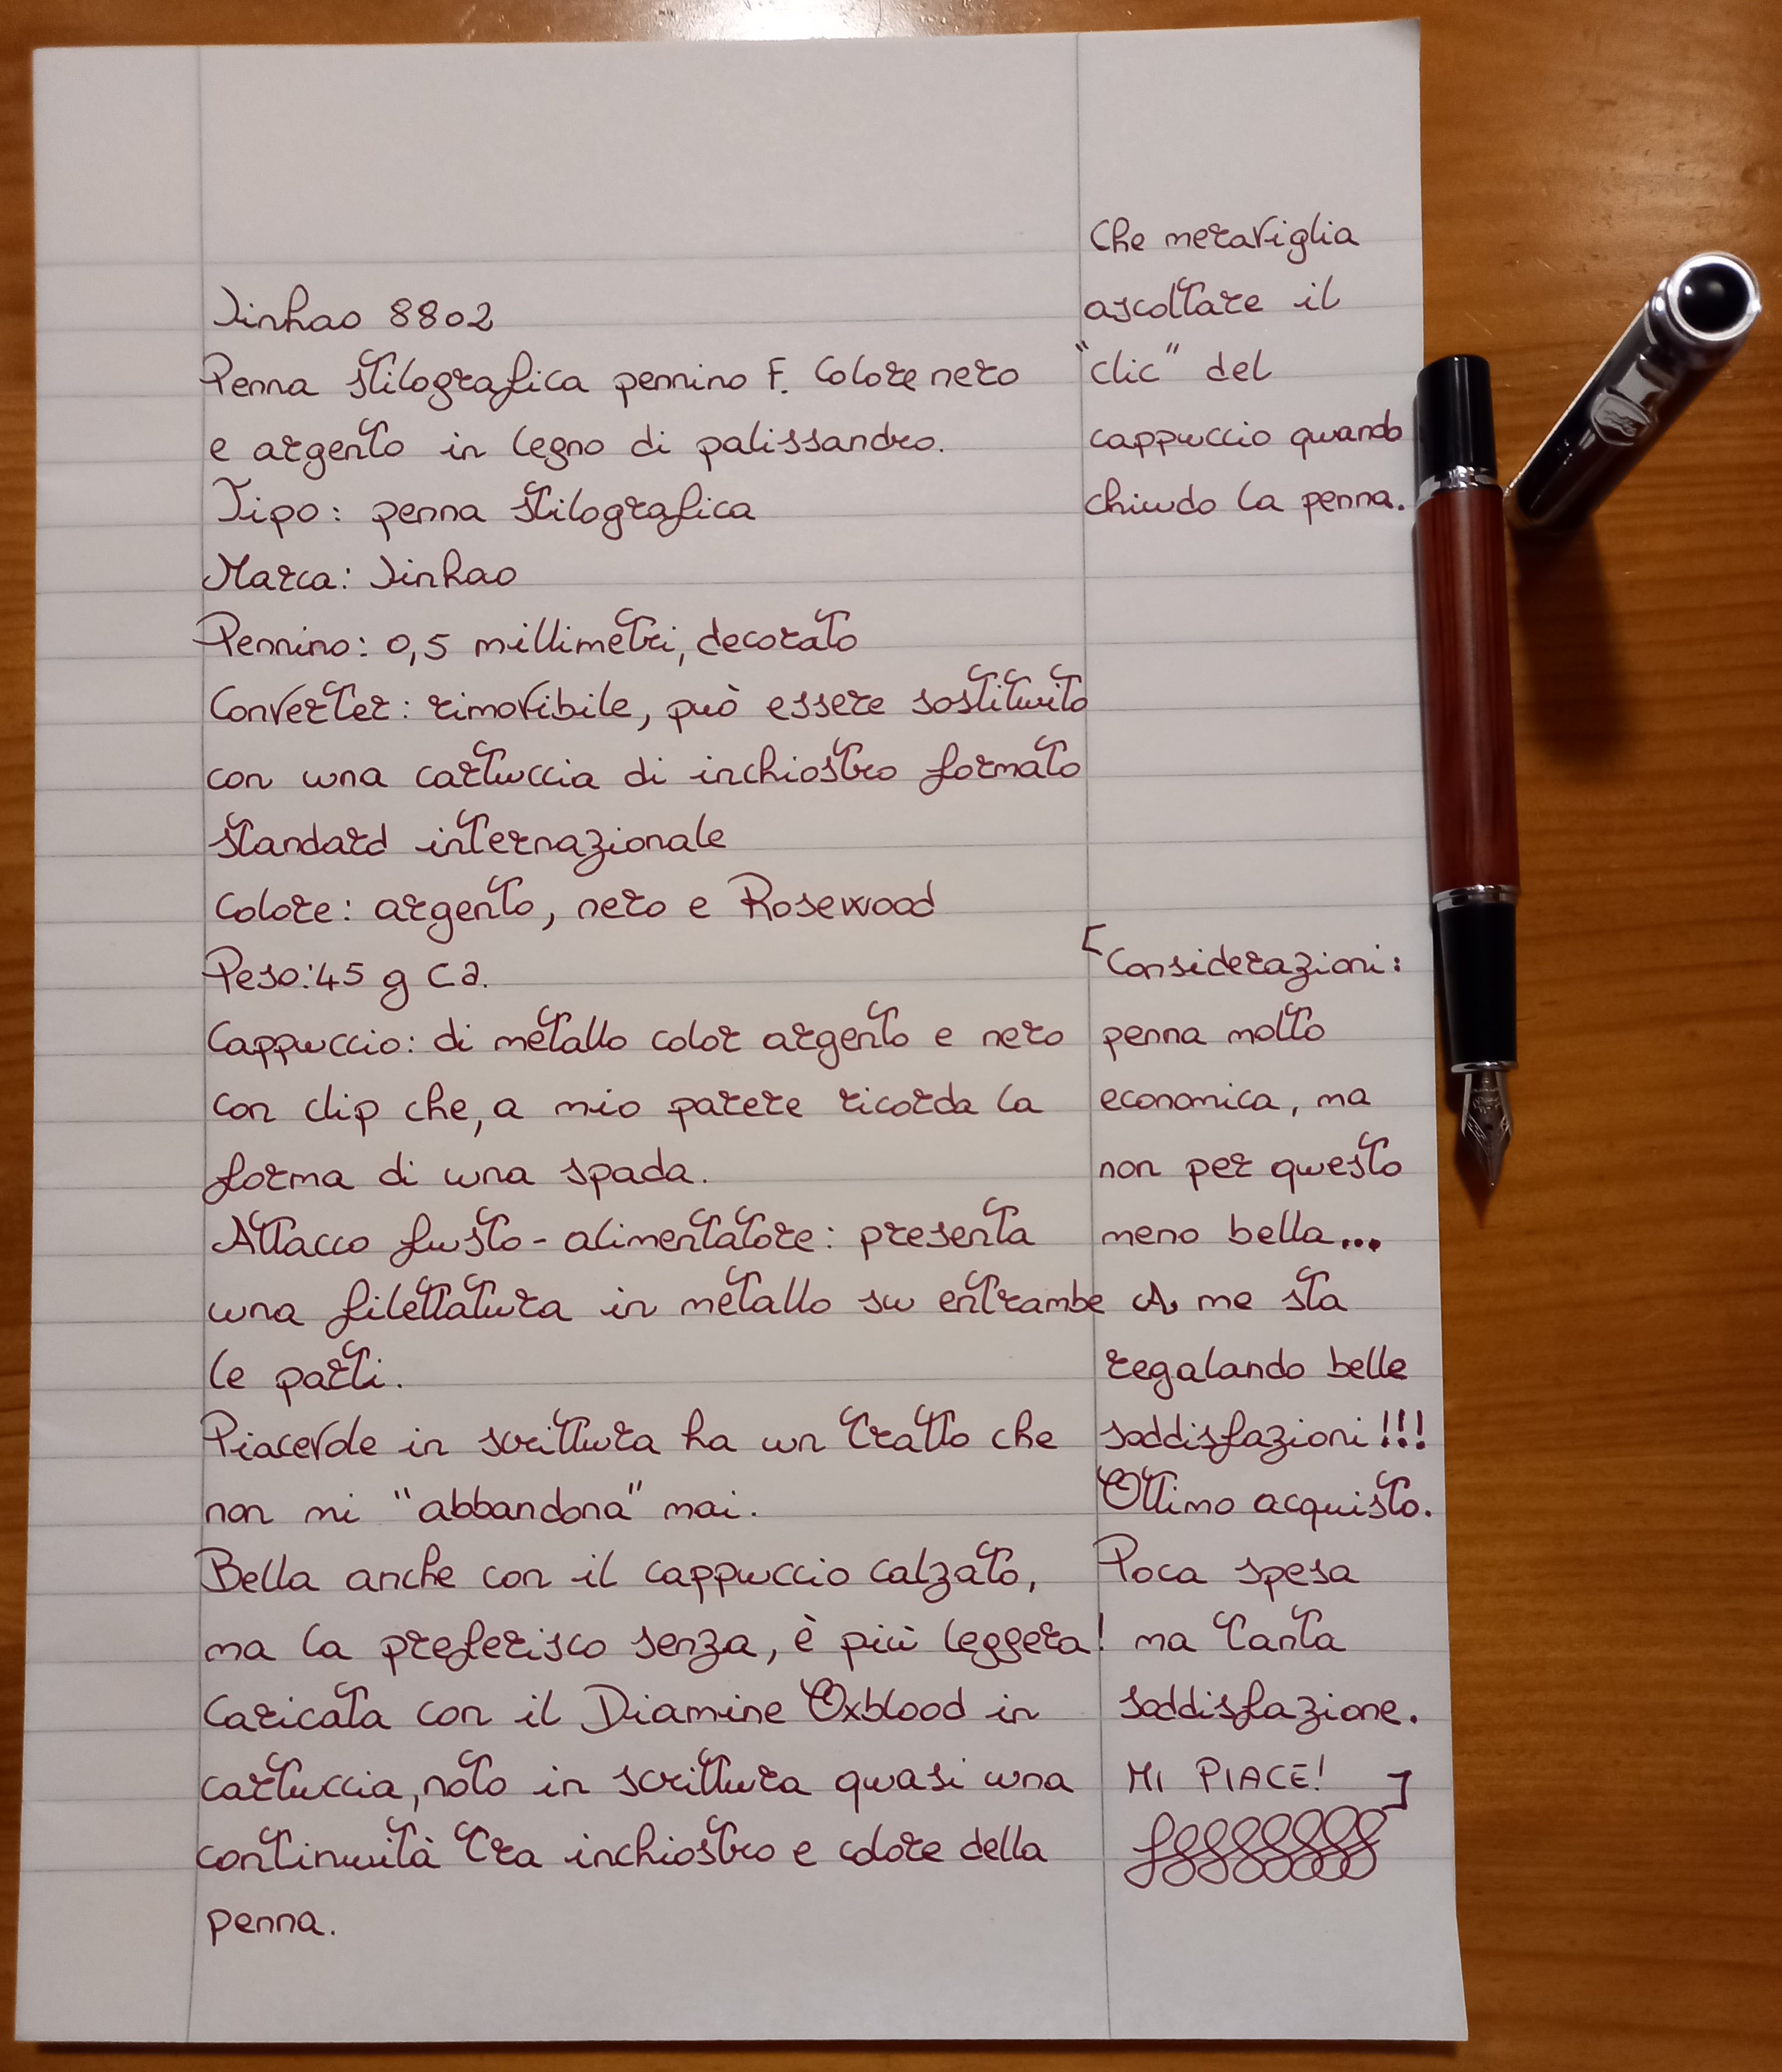 Jinhao 8802
Penna stilografica pennino F. Colore nero
e argento in legno di palissandro.
Tipo: penna stilografica
Marca: Jinhao
Pennino: 0,5 millimetri, decorato
Converter: rimovibile, può essere sostituito
con una cartuccia di inchiostro formato
standard internazionale
Colore: argento, nero e Rosewood
Peso: 45 g ca.
Cappuccio: di metallo color argento e nero
con clip che, a mio parere ricorda la
forma di una spada.
Attacco fusto-alimentatore: presenta
una filettatura in metallo su entrambe
le parti.
Piacevole in scrittura ha un tratto che
non mi "abbandona" mai.
Bella anche con il cappuccio calzato,
ma la preferisco senza, è più leggera!
Caricata con il Diamine Oxblood in
cartuccia, noto in scrittura quasi una
continuità tra inchiostro e colore della
penna.
Che meraviglia
ascoltare il
"clic" del
cappuccio quando
chiudo la penna.
[Considerazioni:
penna molto
economica, ma
non per questo
meno bella...
A me sta
regalando belle
soddisfazioni!!!
Ottimo acquisto.
Poca spesa
ma tanta
soddisfazione.
MI PIACE! ]